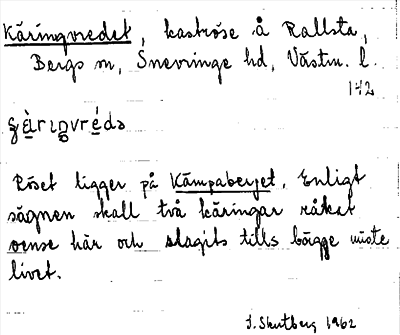 Käringvredet, kaströse å Rallsta,
Bergs sn, Snevringe hd, Västm. l.
142
ʂèrɩŋvrédə
Röset ligger på Kämpaberget. Enligt
sägnen skall två käringar råkat
oense här och slagits tills bägge miste
livet.
S. Skutberg 1962